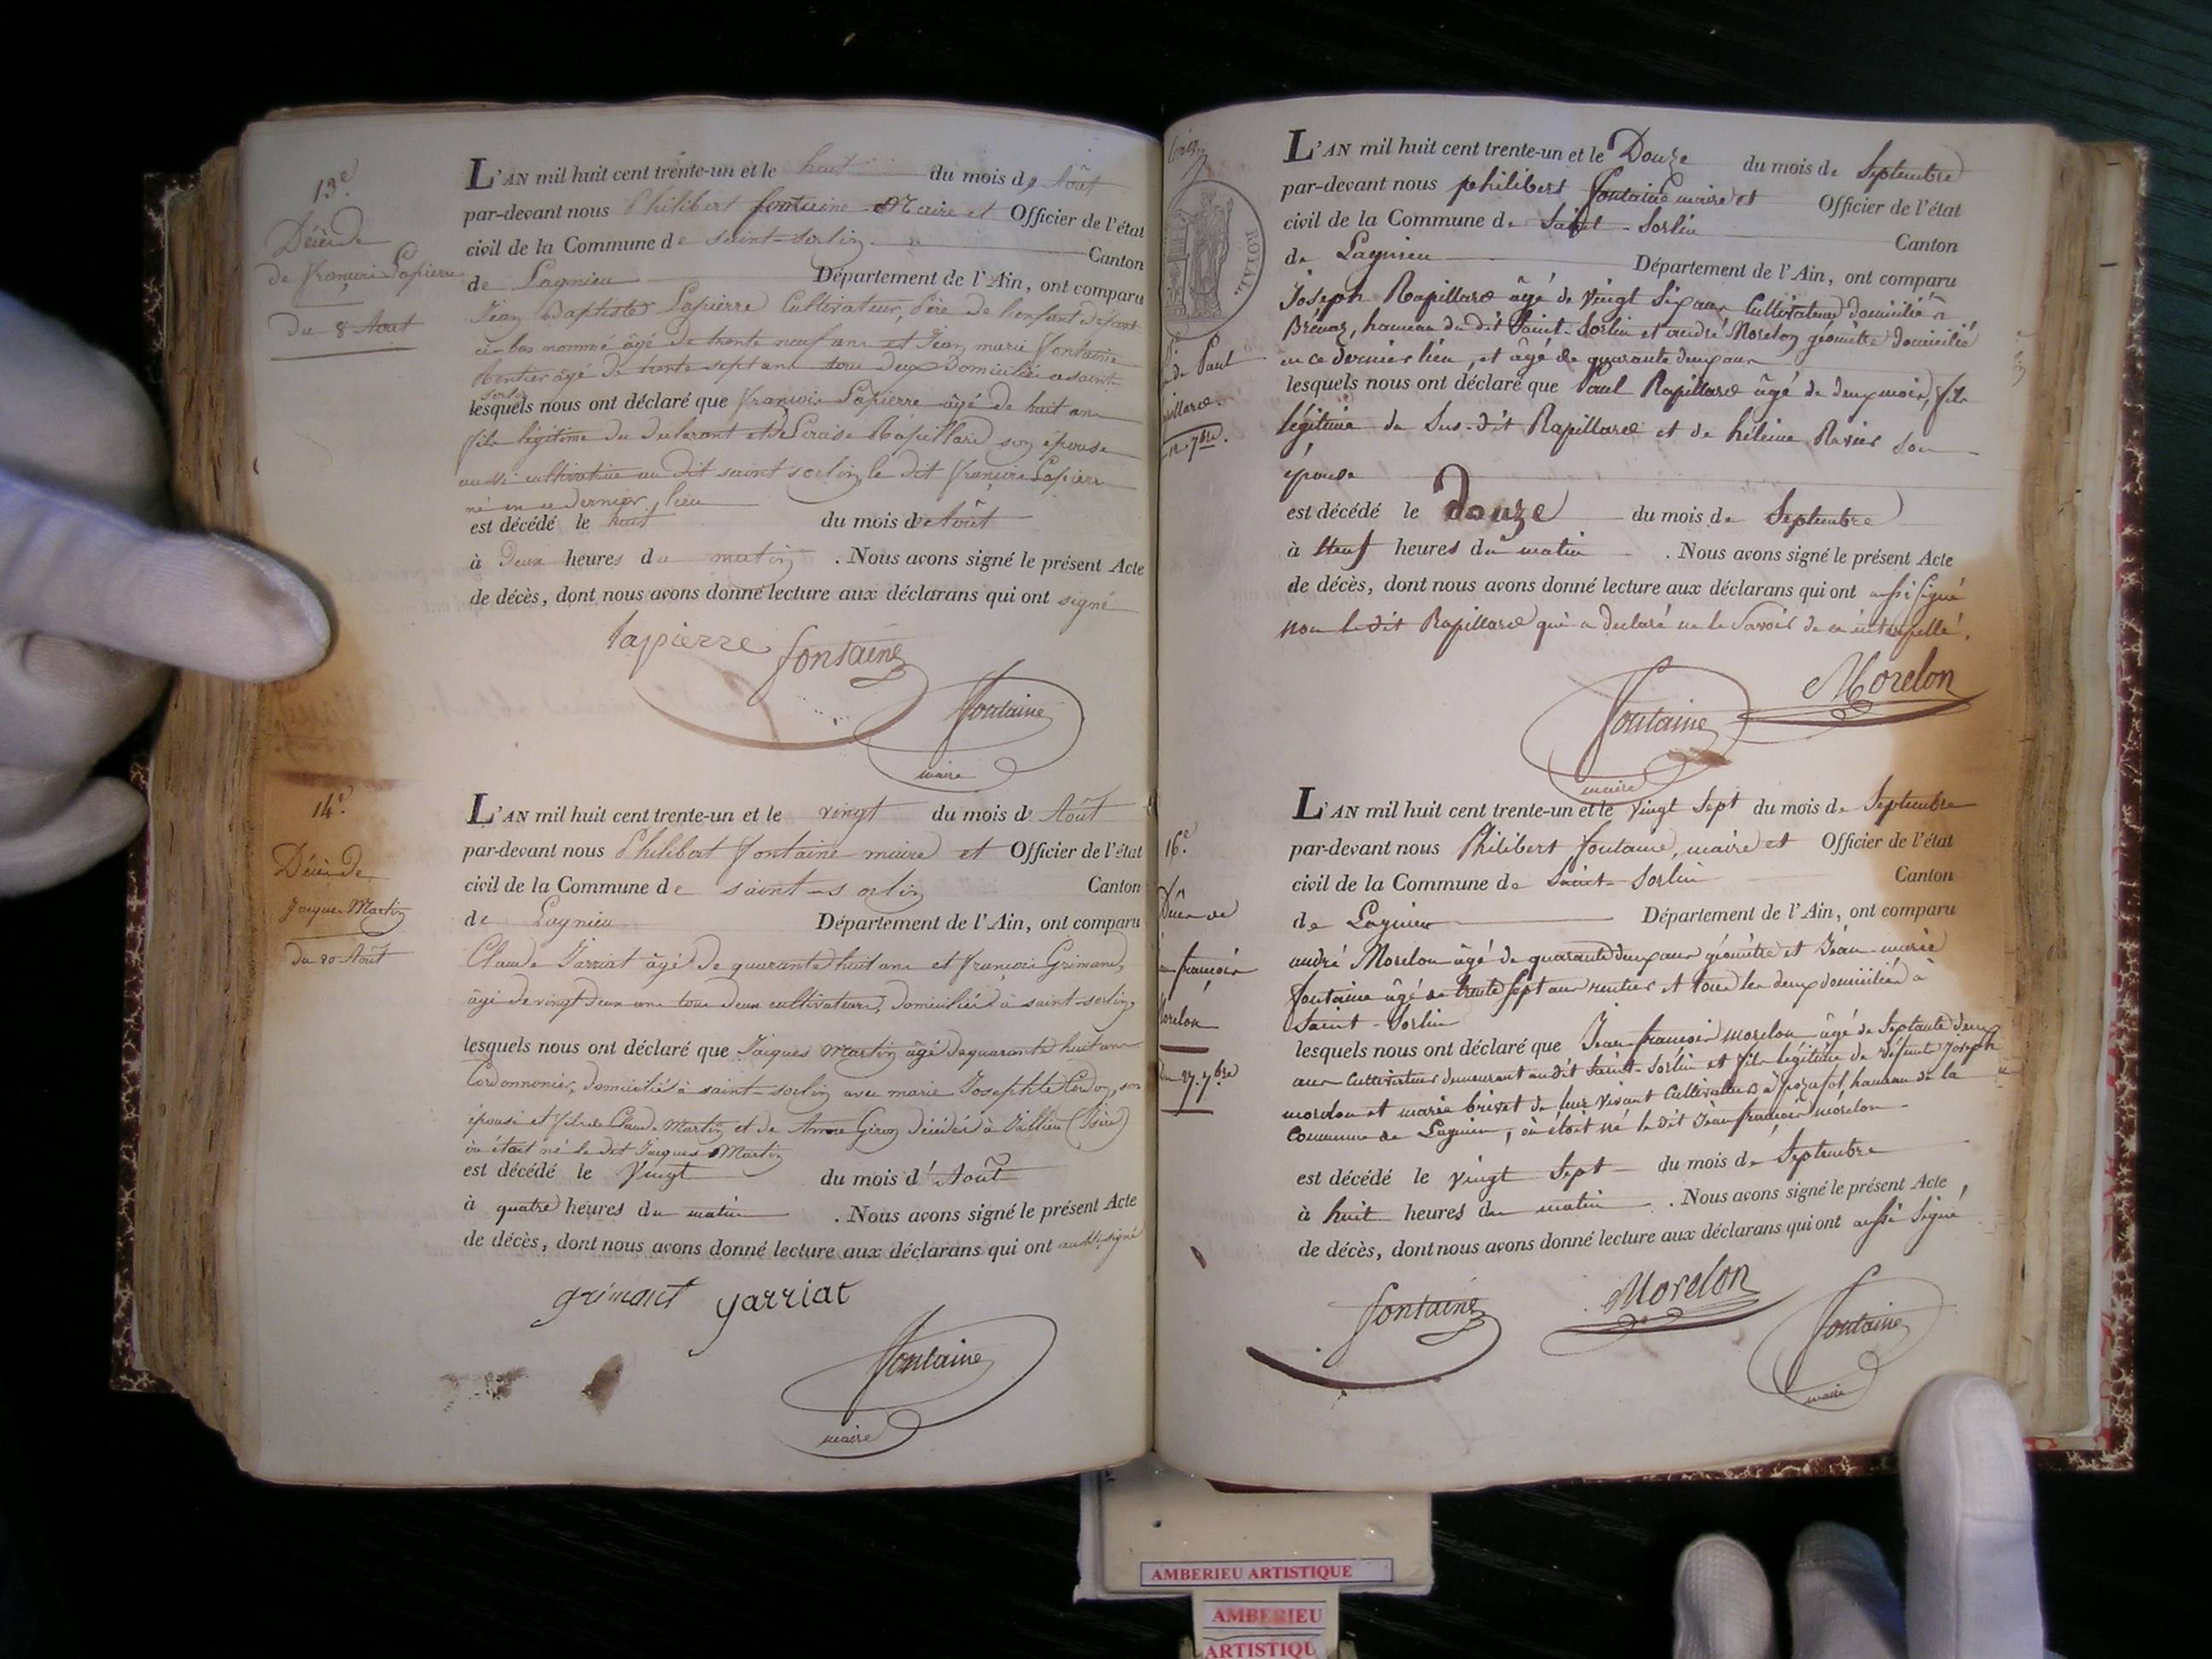 13e.
Décès de
de françois Lapierre
Du 8 Aout
L'AN mil huit cent trente-un et le huit du mois d' Août
par-devant nous Philibert fontaine Maire et Officier de l'état
civil de la Commune de saint-sorlin Canton
de Lagnieu Département de l'Ain, ont comparu
Jean Baptiste Lapierre Cultivateur, Père de l'enfant défunt
ci-bas nommé âgé de trente neuf ans et Jean marie fontaine
Rentier âgé de trente sept ans tous deux Domiciliés a saint-
sorlin
lesquels nous ont déclaré que françois Lapierre âgé de huit ans
fils légitime du déclarant et de Louise Rapillard son épouse
aussi cultivatrice au dit saint sorlin, le dit françois Lapierre
né en ce dernier lieu
est décédé le huit du mois d'Août
à Deux heures du matin . Nous avons signé le présent Acte
de décès, dont nous avons donné lecture aux déclarans qui ont signé
lapierre fontaine
fontaine
maire
14e.
Décès de
Jacques Martin
du 20 Août
L'AN mil huit cent trente-un et le vingt du mois d' Août
par-devant nous Philibert fontaine maire et Officier de l'état
civil de la Commune de saint-sorlin Canton
de Lagnieu Département de l'Ain, ont comparu
Claude Jarriat âgé de quarante huit ans et françois Grimand,
âgé de vingt deux ans tous deux cultivateurs, domiciliés à saint-sorlin,
lesquels nous ont déclaré que Jacques Martin âgé de quarante huit ans
Cordonnier, domicilié à saint-sorlin avec marie Josephte son
épouse et fils de Claude Martin et de Anne Giron décédés à Jallieu (Isère)
où était né le dit Jacques Martin
est décédé le Vingt du mois d' Août
à quatre heures du matin . Nous avons signé le présent Acte
de décès, dont nous avons donné lecture aux déclarans qui ont aussi signé
grimant yarriat
fontaine
maire
ROYAL.
de Paul
pillard.
12. 7bre.
L'AN mil huit cent trente-un et le Douze du mois de Septembre
par-devant nous philibert fontaine maire et Officier de l'état
civil de la Commune de Saint-Sorlin Canton
de Lagnieu Département de l'Ain, ont comparu
Joseph Rapillard âgé de vingt six ans Cultivateur domicilié à
Brénaz, hameau du dit Saint-Sorlin et andré Morelon géomètre domicilié
en ce dernier lieu, et âgé de quarante deux ans
lesquels nous ont déclaré que Paul Rapillard âgé de deux mois, fils
légitime du Sus-dit Rapillard et de hélène Ravier Son
épouse
est décédé le douze du mois de Septembre
à Neuf heures du matin . Nous avons signé le présent Acte
de décès, dont nous avons donné lecture aux déclarans qui ont aussi signé
non le dit Rapillard qui a déclaré ne le Savoir de ce interpellé.
Morelon
fontaine
maire
16e.
Décès de
françois
Morelon
du 27. 7bre
L'AN mil huit cent trente-un et le vingt Sept du mois de Septembre
par-devant nous Philibert fontaine, maire et Officier de l'état
civil de la Commune de Saint-Sorlin Canton
de Lagnieu Département de l'Ain, ont comparu
andré Morelon âgé de quarante deux ans géomètre et Jean-marie
fontaine âgé de trente Sept ans rentier et tous les deux domiciliés à
Saint-Sorlin
lesquels nous ont déclaré que Jean françois morelon âgé de Septante deux
ans Cultivateur demeurant au dit Saint-Sorlin et fils légitime de défunts Joseph
morelon et marie brivet de leur vivant Cultivateurs à posafol, hameau de la
Commune de Lagnieu, où étoit né le dit Jean françois morelon
est décédé le vingt Sept du mois de Septembre
à huit heures du matin . Nous avons signé le présent Acte
de décès, dont nous avons donné lecture aux déclarans qui ont aussi Signé
fontaine Morelon fontaine
maire
AMBERIEU ARTISTIQUE
AMBERIEU
ARTISTIQU